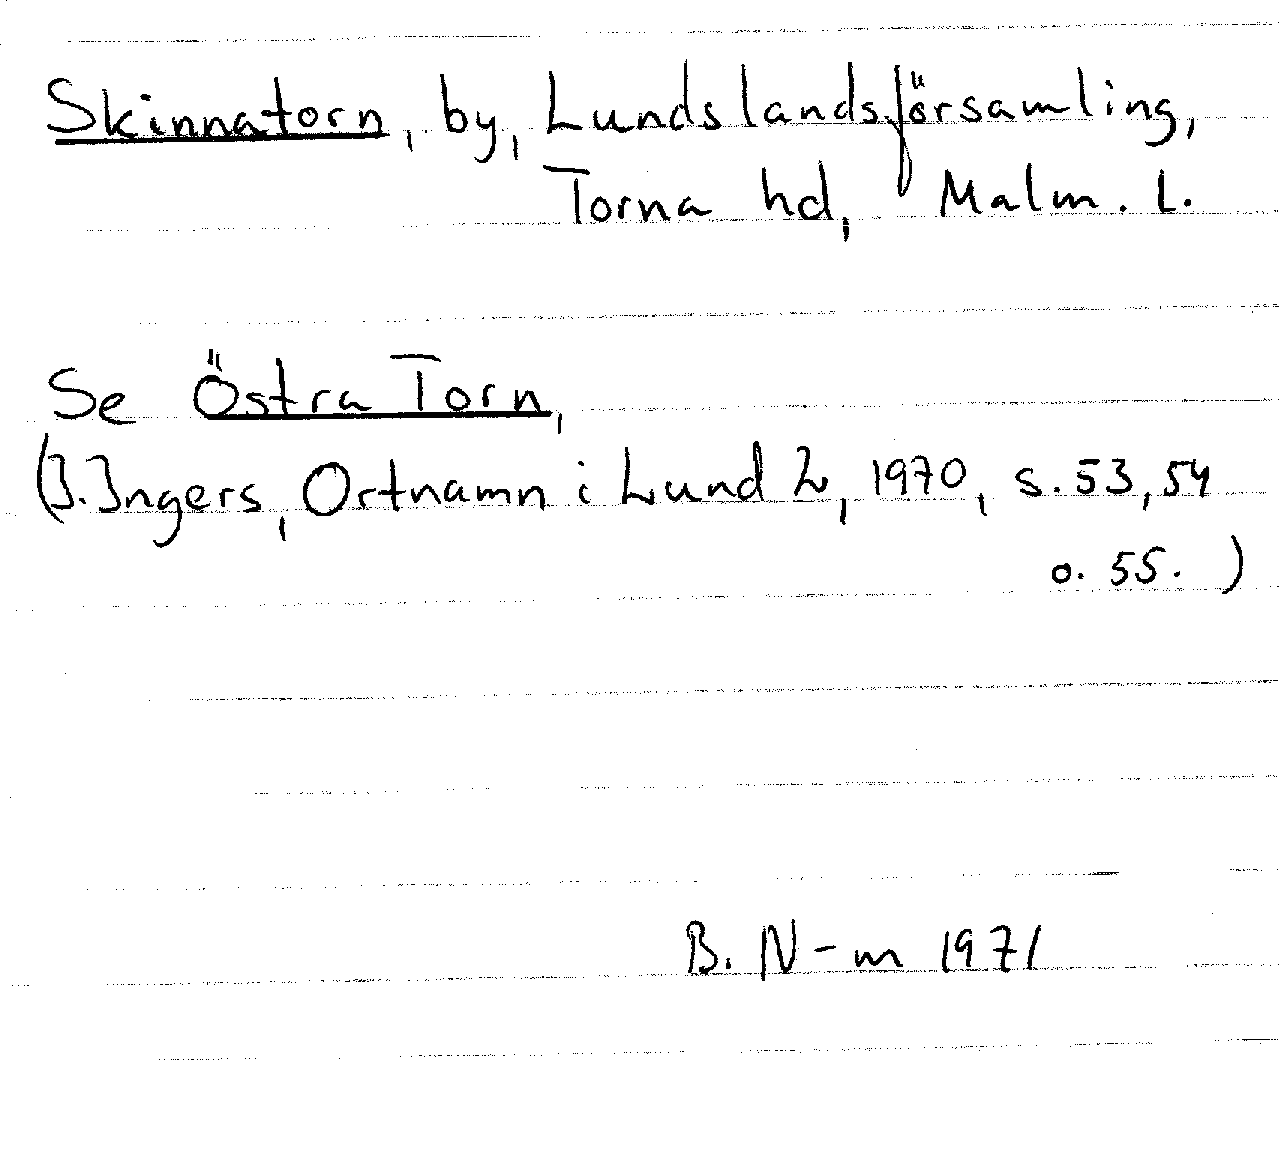 Skinnatorn, by, Lunds landsförsamling,
Torna hd, Malm. L.
Se Östra Torn,
(I. Ingers, Ortnamn i Lund 2, 1970, s. 53, 54
o. 55. )
B. N-m 1971